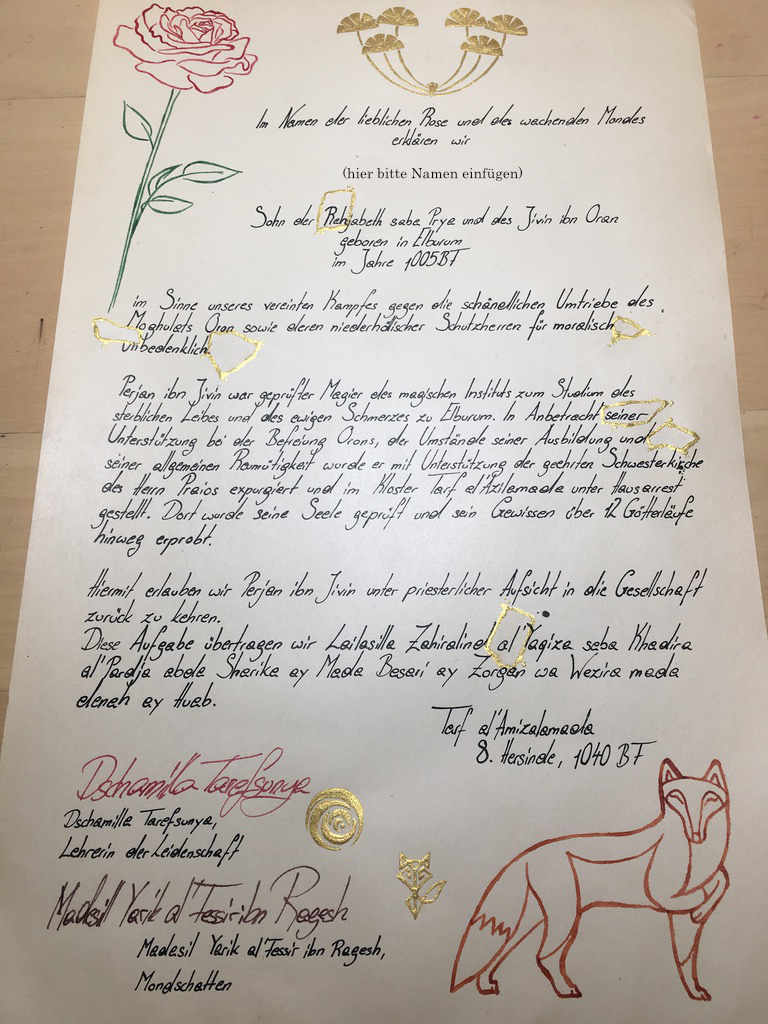 Im Namen der lieblichen Rose und des wachenden Mondes
erklären wir
(hier bitte Namen einfügen)
Sohn der Rehjabeth saba Prya und des Jivin ibn Oran
geboren in Elburum
im Jahre 1005BF
im Sinne unseres vereinten Kampfes gegen die schändlichen Umtriebe des
Moghulats Oron sowie deren niederhöllischer Schutzherren für moralisch
unbedenklich.
Perjan ibn Jivin war geprüfter Magier des magischen Instituts zum Studium des
sterblichen Leibes und des ewigen Schmerzes zu Elburum. In Anbetracht seiner
Unterstützung bei der Befreiung Orons, der Umstände seiner Ausbildung und
seiner allgemeinen Reumütigkeit wurde er mit Unterstützung der geehrten Schwesterkirche
des Herrn Praios expurgiert und im Kloster Tarf al'Azilamada unter Hausarrest
gestellt. Dort wurde seine Seele geprüft und sein Gewissen über 12 Götterläufe
hinweg erprobt.
Hiermit erlauben wir Perjan ibn Jivin unter priesterlicher Aufsicht in die Gesellschaft
zurück zu kehren.
Diese Aufgabe übertragen wir Lailasilla Zahiralind al'Yaqiza seba Khadira
al'Pardja abda Sharika ay Mada Basari ay Zorgan wa Wezira mada
denah ay Huab.
Tarf al'Amizalamada
8. Hersinde, 1040 BF
Dschamilla Tarefsunya
Dschamilla Tarefsunya,
Lehrerin der Leidenschaft
Madasil Yarik al'Tessir ibn Ragesh
Madasil Yarik al'Tessir ibn Ragesh,
Mondschatten